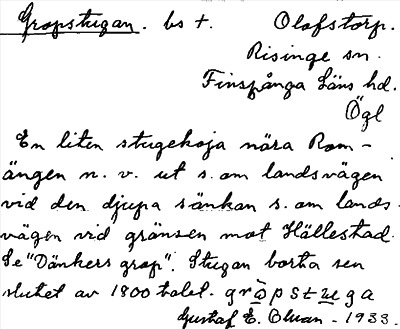 Gropstugan. bs †. Olofstorp.
Risinge sn.
Finspånga läns hd.
Ögl
En liten stugekoja nära Rom-
ängen n. v. ut s. om landsvägen
vid den djupa sänkan s. om lands-
vägen vid gränsen mot Hällestad.
Se "Dänkers grop". Stugan borta sen
slutet av 1800 talet. gròpstuga
Gustaf E. Olsson. - 1933.